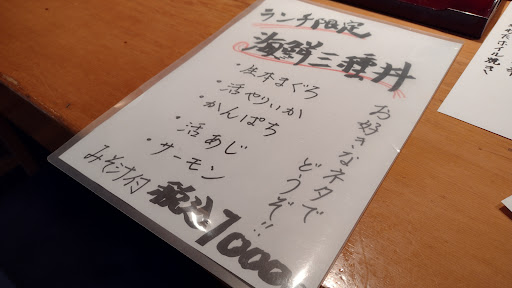 ランチ限定
海鮮三種丼
・生本まぐろ
・活やりいか
・かんぱち
・活あじ
・サーモン
お好きなネタで
どうぞ!!
みそ汁付
税込1000
ホイル焼き